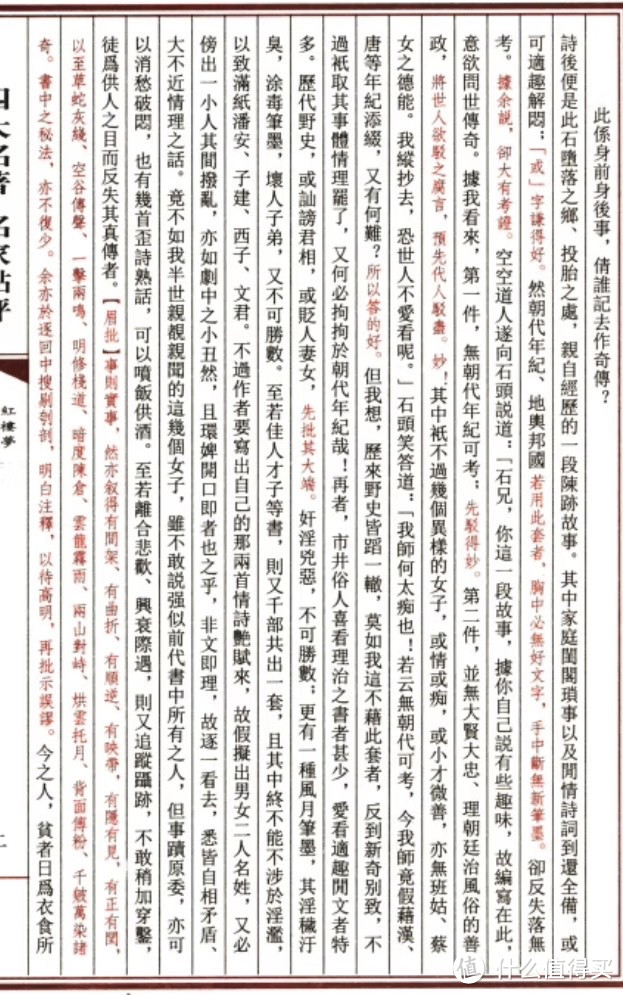 此係身前身後事，倩誰記去作奇傳？
詩後便是此石墮落之鄉、投胎之處，親自經歷的一段陳跡故事。其中家庭閨閣瑣事以及閒情詩詞到還全備，或
可適趣解悶；「或」字謙得好。然朝代年紀、地輿邦國若用此套者，胸中必無好文字，手中斷無新筆墨。卻反失落無
考。據余説，卻大有考證。空空道人遂向石頭説道：「石兄，你這一段故事，據你自己説有些趣味，故編寫在此，
意欲問世傳奇。據我看來，第一件，無朝代年紀可考；先駁得妙。第二件，並無大賢大忠、理朝廷治風俗的善
政，將世人欲駁之腐言，預先代人駁盡。妙！其中衹不過幾個異樣的女子，或情或痴，或小才微善，亦無班姑、蔡
女之德能。我縱抄去，恐世人不愛看呢。」石頭笑答道：「我師何太痴也！若云無朝代可考，今我師竟假藉漢、
唐等年紀添綴，又有何難？所以答的好。但我想，歷來野史皆蹈一轍，莫如我這不藉此套者，反到新奇別致，不
過衹取其事體情理罷了，又何必拘拘於朝代年紀哉！再者，市井俗人喜看理治之書者甚少，愛看適趣閒文者特
多。歷代野史，或訕謗君相，或貶人妻女，先批其大端。奸淫兇惡，不可勝數；更有一種風月筆墨，其淫穢汙
臭，涂毒筆墨，壞人子弟，又不可勝數。至若佳人才子等書，則又千部共出一套，且其中終不能不涉於淫濫，
以致滿紙潘安、子建、西子、文君。不過作者要寫出自己的那兩首情詩艷賦來，故假擬出男女二人名姓，又必
傍出一小人其間撥亂，亦如劇中之小丑然，且環婢開口即者也之乎，非文即理，故逐一看去，悉皆自相矛盾、
大不近情理之話。竟不如我半世親覩親聞的這幾個女子，雖不敢説强似前代書中所有之人，但事蹟原委，亦可
以消愁破悶，也有幾首歪詩熟話，可以噴飯供酒。至若離合悲歡、興衰際遇，則又追蹤躡跡，不敢稍加穿鑿，
徒爲供人之目而反失其真傳者。【眉批】事則實事，然亦叙得有間架、有曲折、有順逆、有映帶，有隱有見，有正有閏，
以至草蛇灰綫、空谷傳聲、一擊兩鳴、明修棧道、暗度陳倉、雲龍霧雨、兩山對峙、烘雲托月、背面傅粉、千皴萬染諸
奇。書中之秘法，亦不復少。余亦於逐回中搜剔刳剖，明白注釋，以待高明，再批示誤謬。今之人，貧者日爲衣食所
四大名著 名家點評
紅樓夢
值 什么值得买